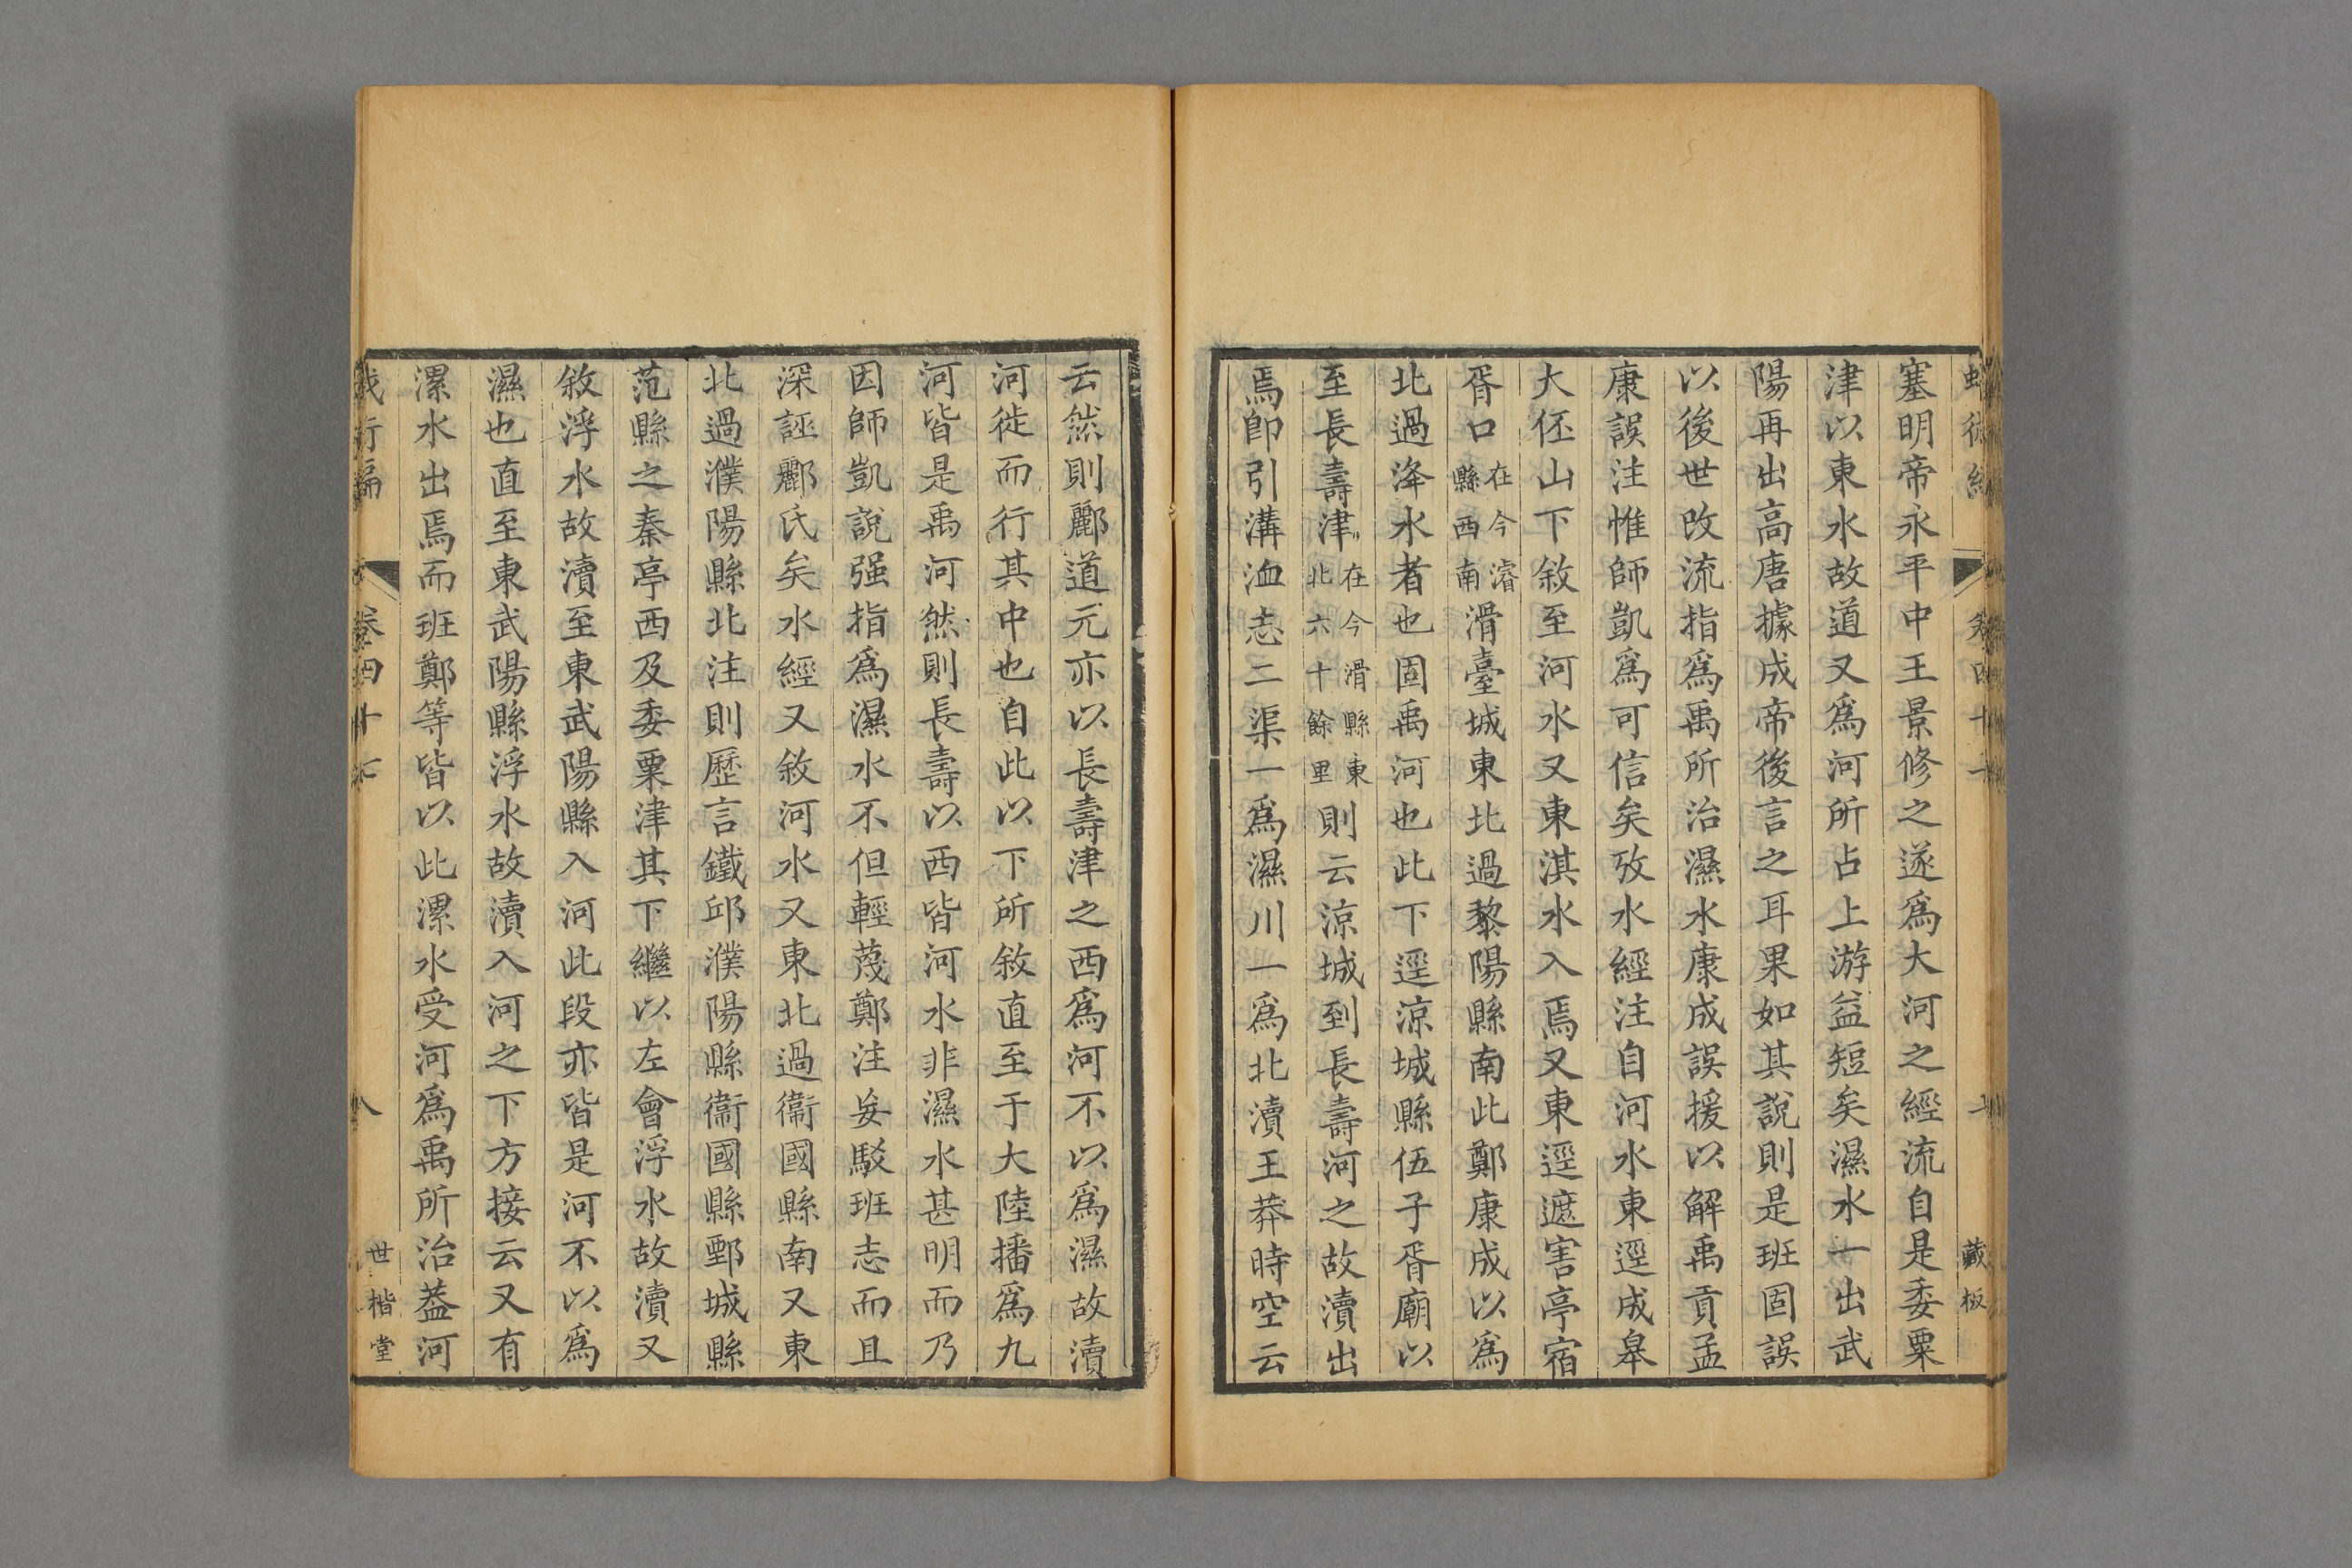 塞明帝永平中王景修之遂爲大河之經流自是委粟
津以東水故道又爲河所占上游益短矣濕水一出武
陽再出高唐據成帝後言之耳果如其說則是班固誤
以後世改流指爲禹所治濕水康成誤援以解禹貢孟
康誤注惟師凱爲可信矣攷水經注自河水東逕成皋
大伾山下敘至河水又東淇水入焉又東逕遮害亭宿
胥口在今濬縣西南滑臺城東北過黎陽縣南此鄭康成以爲
北過洚水者也固禹河也此下逕涼城縣伍子胥廟以
至長壽津在今滑縣東北六十餘里則云涼城到長壽河之故瀆出
焉卽引溝洫志二渠一爲濕川一爲北瀆王莽時空云
藏板
云然則酈道元亦以長壽津之西爲河不以爲濕故瀆
河徙而行其中也自此以下所敘直至于大陸播爲九
河皆是禹河然則長壽以西皆河水非濕水甚明而乃
因師凱說强指爲濕水不但輕蔑鄭注妄駁班志而且
深誣酈氏矣水經又敘河水又東北過衞國縣南又東
北過濮陽縣北注則歷言鐵邱濮陽縣衞國縣鄄城縣
范縣之秦亭西及委粟津其下繼以左會浮水故瀆又
敘浮水故瀆至東武陽縣入河此段亦皆是河不以爲
濕也直至東武陽縣浮水故瀆入河之下方接云又有
漯水出焉而班鄭等皆以此漯水受河爲禹所治葢河
卷四十七
八
世楷堂